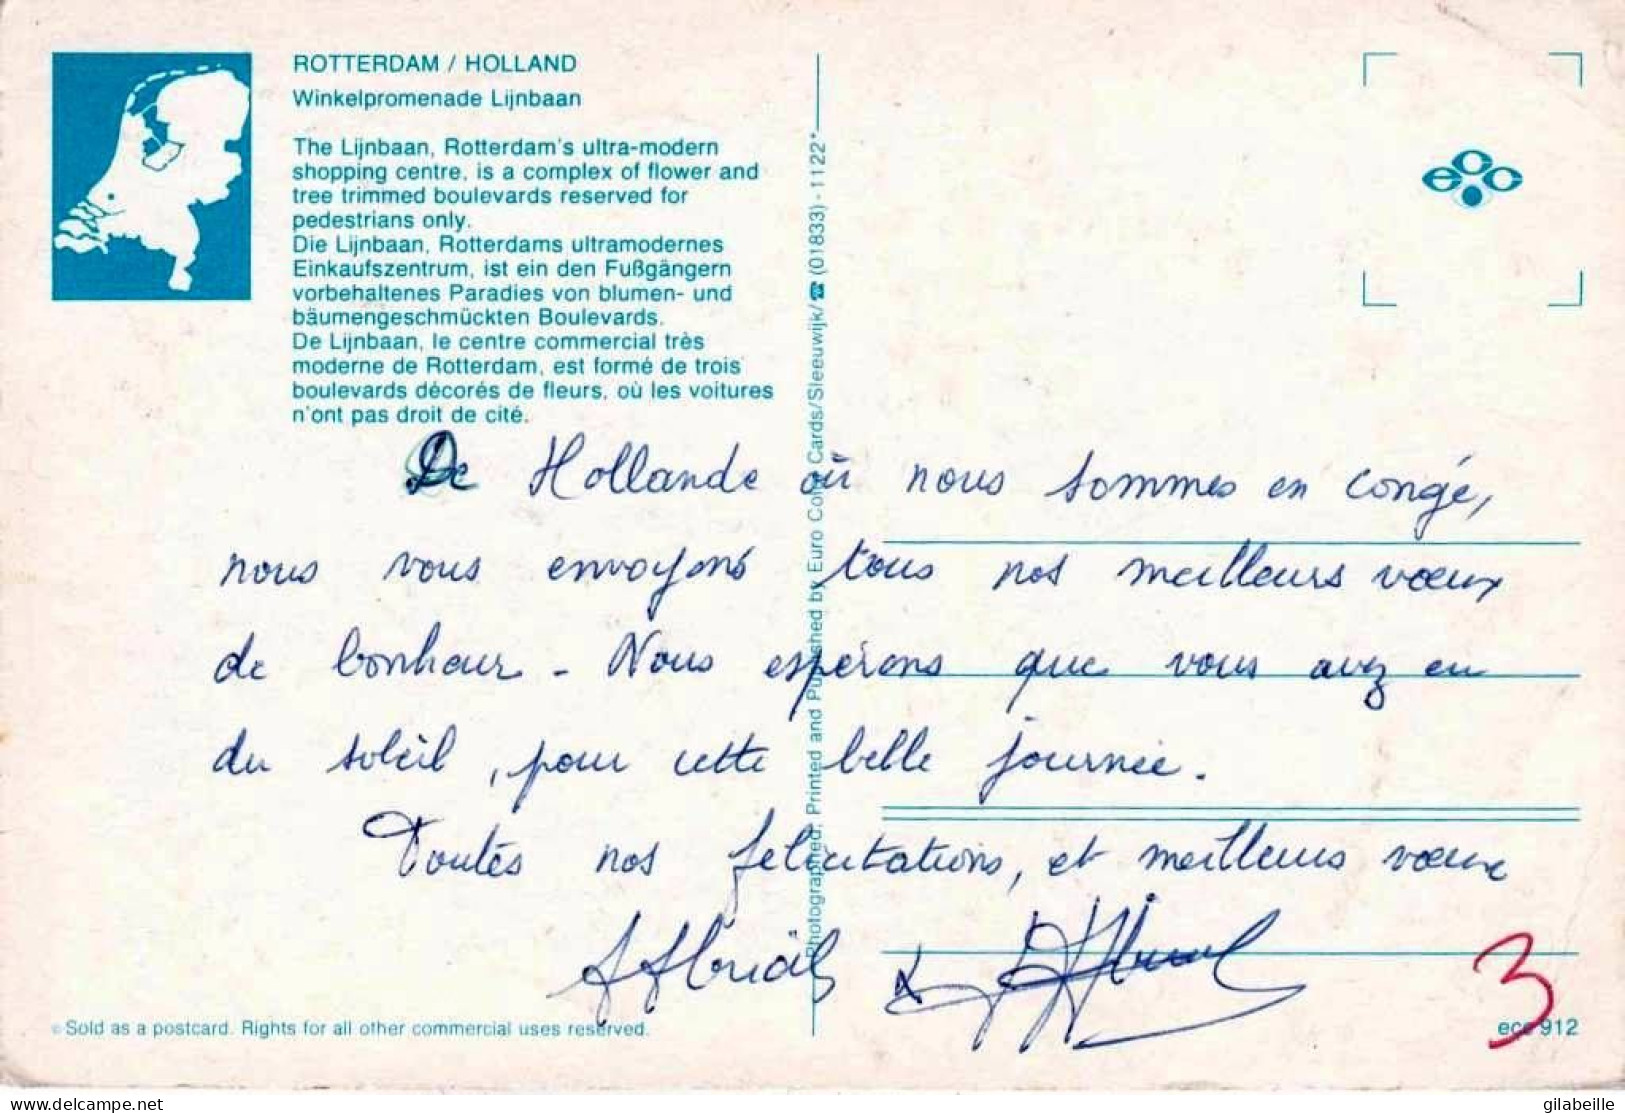 ROTTERDAM / HOLLAND
Winkelpromenade Lijnbaan
The Lijnbaan, Rotterdam's ultra-modern
shopping centre, is a complex of flower and
tree trimmed boulevards reserved for
pedestrians only.
Die Lijnbaan, Rotterdams ultramodernes
Einkaufszentrum, ist ein den Fußgängern
vorbehaltenes Paradies von blumen- und
bäumengeschmückten Boulevards.
De Lijnbaan, le centre commercial très
moderne de Rotterdam, est formé de trois
boulevards décorés de fleurs, où les voitures
n'ont pas droit de cité.
Photographed, Printed and Published by Euro Color Cards/Sleeuwijk/☎ (01833) - 1122*
ecc
De Hollande où nous sommes en congé,
nous vous envoyons tous nos meilleurs vœux
de bonheur - Nous espérons que vous avez eu
du soleil, pour cette belle journée.
Toutes nos félicitations, et meilleurs vœux
&
3
© Sold as a postcard. Rights for all other commercial uses reserved.
ecc 912
delcampe.net
gilabeille